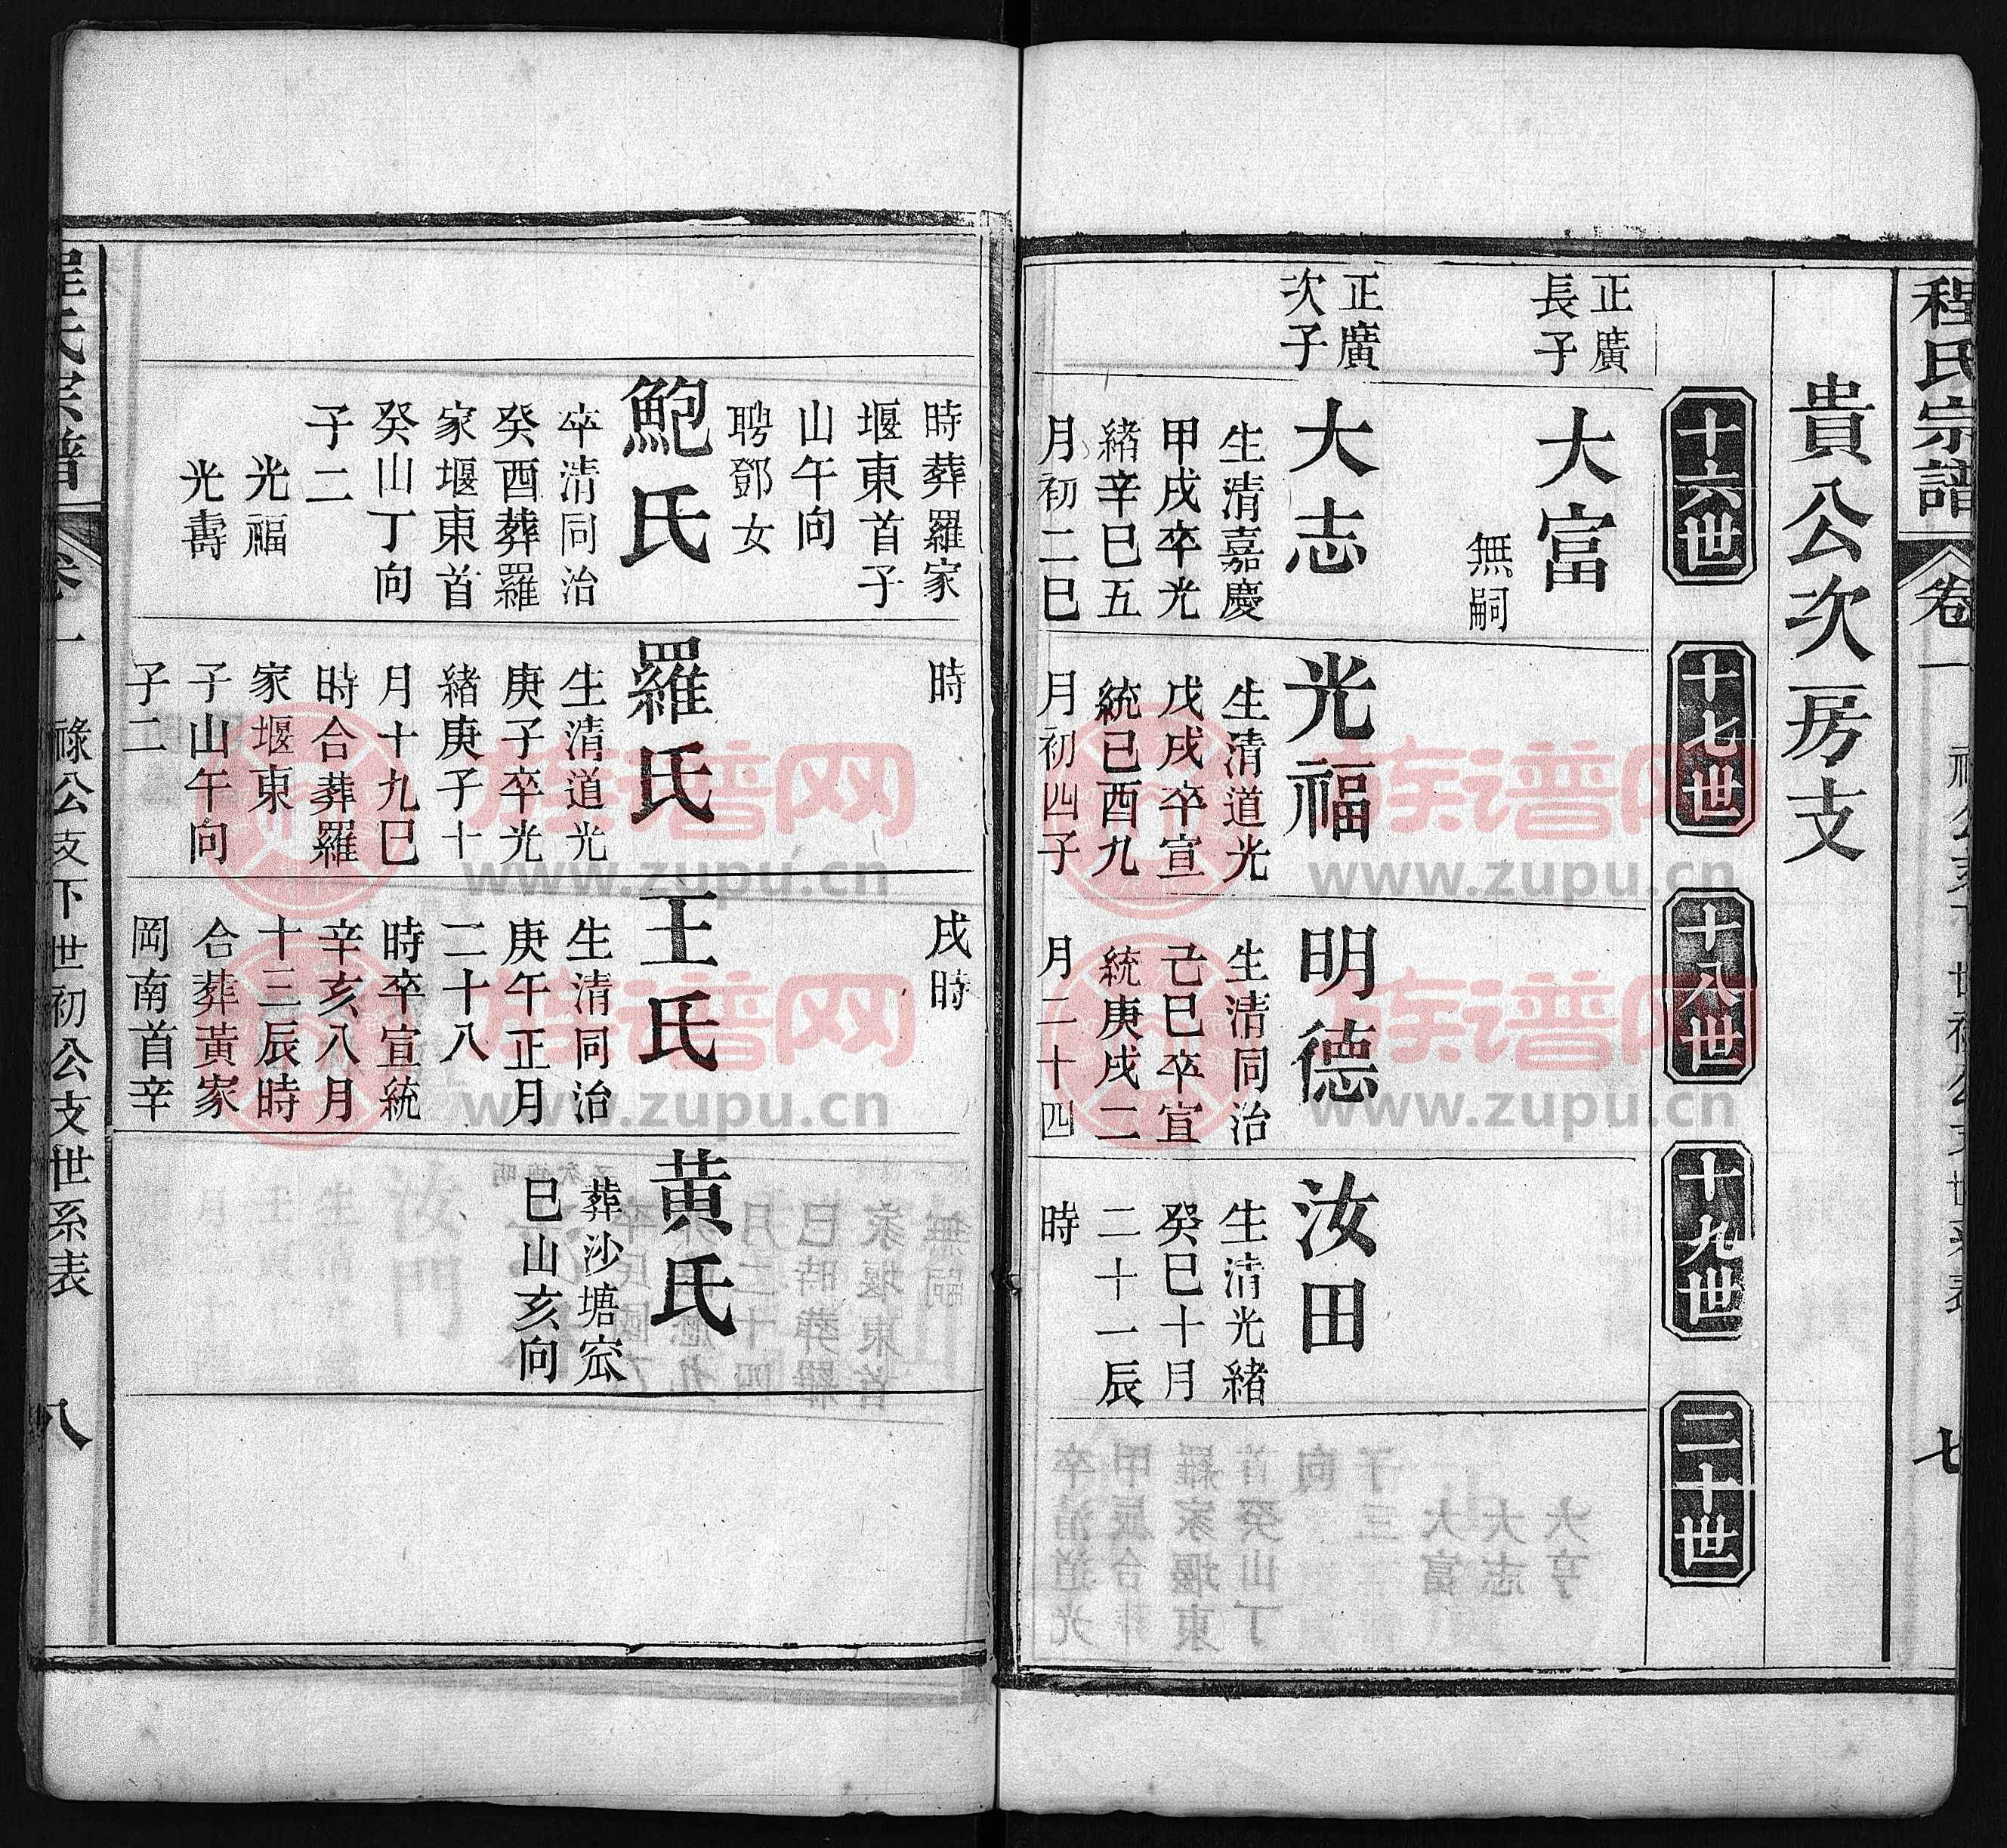 程氏宗譜
卷一
七
貴公次房支
十六世
十七世
十八世
十九世
二十世
正廣
長子
大富
無嗣
正廣
次子
大志
生清嘉慶
甲戌卒光
緒辛巳五
月初二巳
光福
生清道光
戊戌卒宣
統己酉九
月初四子
明德
生清同治
己巳卒宣
統庚戌二
月二十四
汝田
生清光緒
癸巳十月
二十一辰
時
時葬羅家
堰東首子
山午向
聘鄧女
鮑氏
卒清同治
癸酉葬羅
家堰東首
癸山丁向
子二
光福
光壽
時
羅氏
生清道光
庚子卒光
緒庚子十
月十九巳
時合葬羅
家堰東
子山午向
子二
戌時
王氏
生清同治
庚午正月
二十八
時卒宣統
辛亥八月
十三辰時
合葬黃家
岡南首辛
黄氏
葬沙塘窊
巳山亥向
程氏宗譜
卷一
祿公支下世初公支世系表
八
族谱网
www.zupu.cn
族谱网
www.zupu.cn
族谱网
www.zupu.cn
族谱网
www.zupu.cn